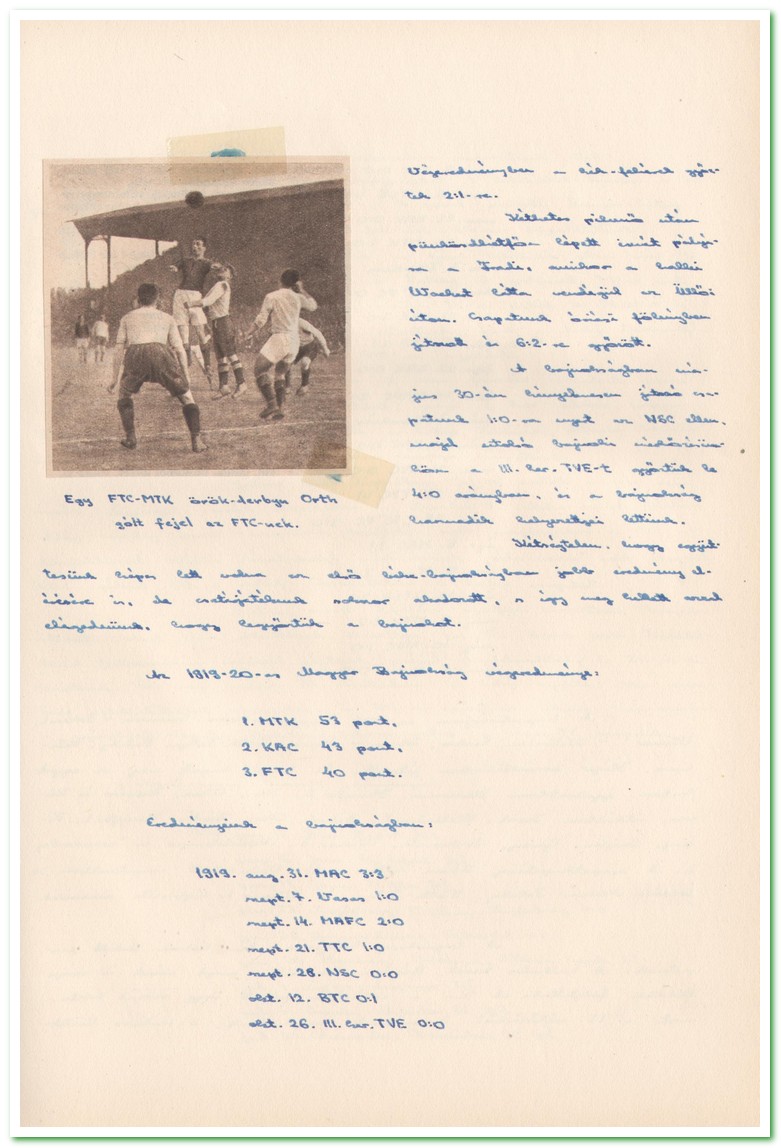 Végeredményben a kék-fehérek győz-
tek 2:1-re.
Kéthetes pihenő után
pünkösdhétfőn lépett ismét pályá-
ra a Fradi, amikor a hallei
Wacker látta vendégül az Üllői
úton. Csapatunk óriási fölényben
játszott és 6:2-re győzött.
A bajnokságban má-
jus 30-án lényegesen játszó csa-
patunk 1:0-ra nyert az NSC ellen,
majd utolsó bajnoki mérkőzésün-
kön a III. ker. TVE-t győztük le
4:0 arányban, és a bajnokság
harmadik helyezettjei lettünk.
Egy FTC-MTK örök-derbyn Orth
gólt fejel az FTC-nek.
Kétségtelen, hogy együt-
tesünk képes lett volna az első béke-bajnokságban jobb eredmény el-
érésére is, de csatárjátékunk sokszor akadozott, s így meg kellett azzal
elégednünk, hogy legyőztük a bajnokot.
Az 1919-20-as Magyar Bajnokság végeredménye:
1. MTK 53 pont.
2. KAC 43 pont.
3. FTC 40 pont.
Eredményeink a bajnokságban:
1919. aug. 31. MAC 3:3
szept. 7. Vasas 1:0
szept. 14. MAFC 2:0
szept. 21. TTC 1:0
szept. 28. NSC 0:0
okt. 12. BTC 0:1
okt. 26. III. ker. TVE 0:0